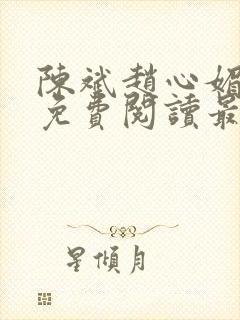 陳斌趙心媚
免費閱讀最
星傾月